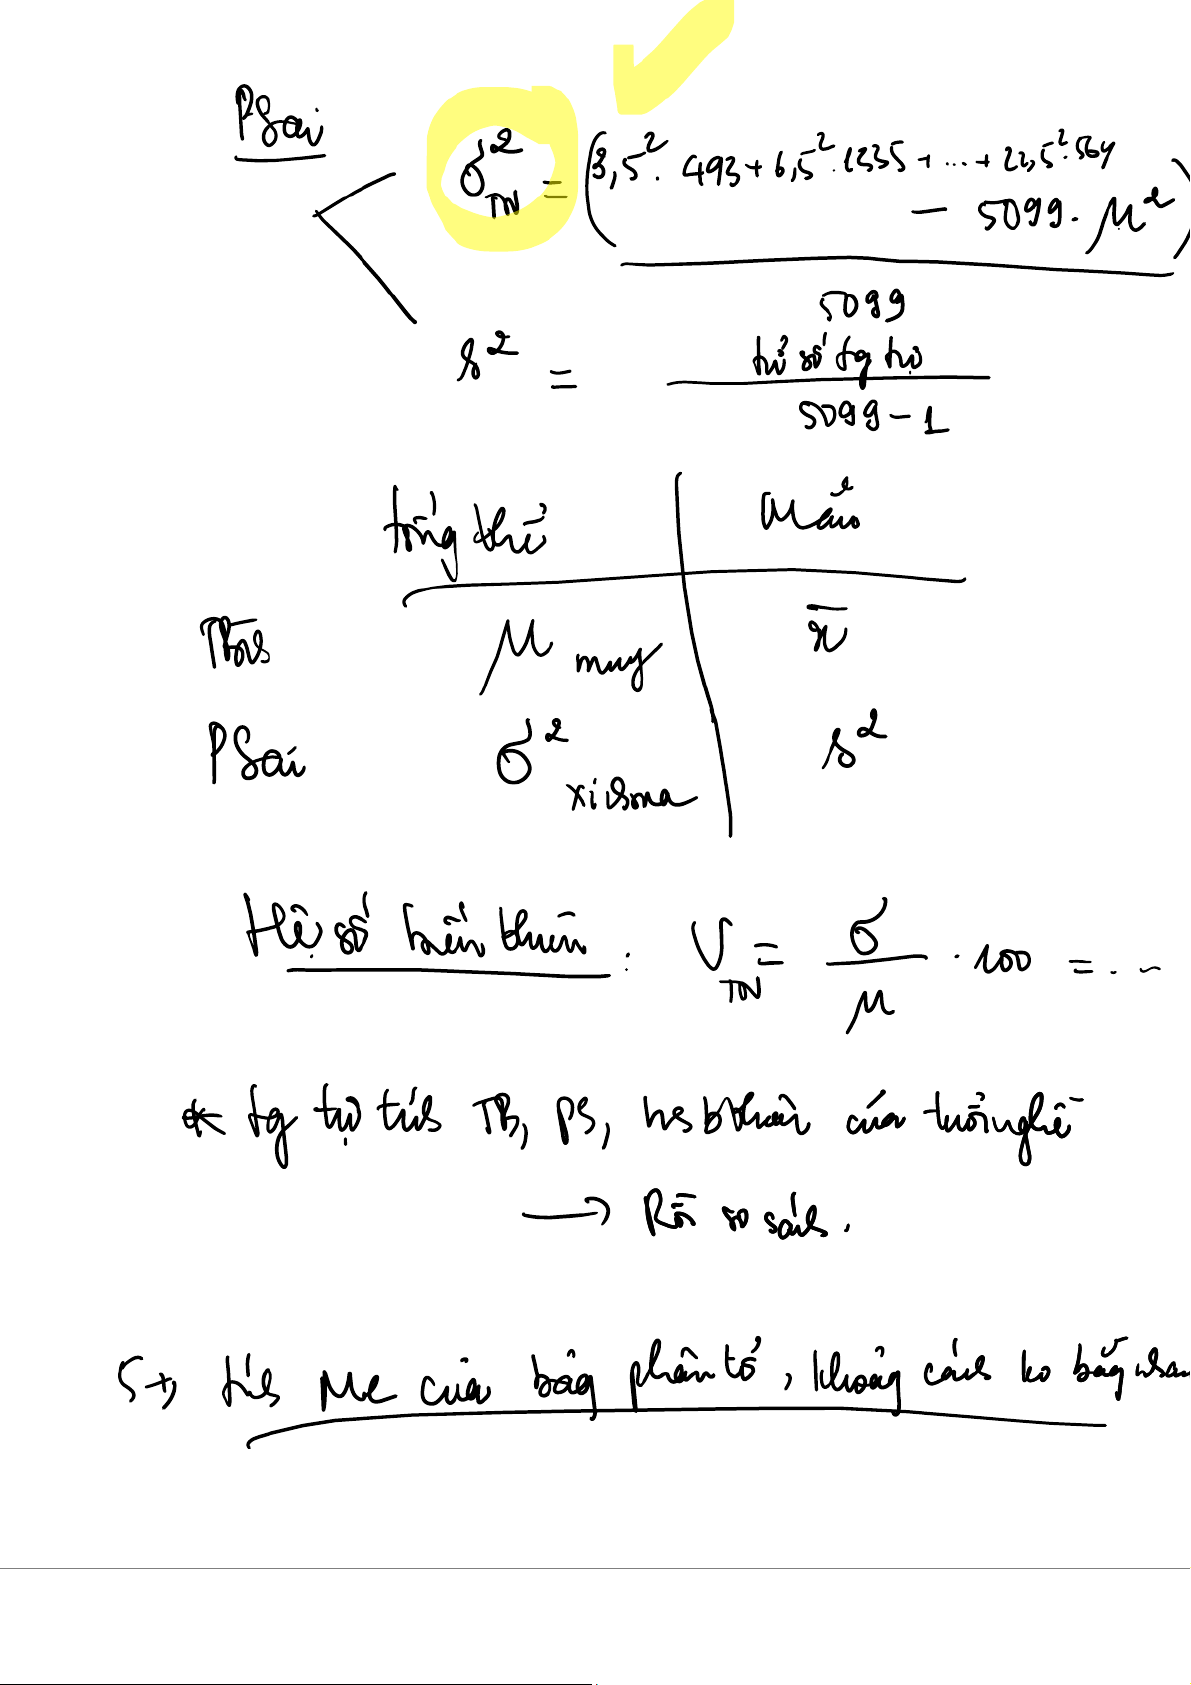 PSai
σ²TN = (3,5². 493 + 6,5². 1335 + ... + 22,5². 564
− 5099. μ²)
5099
s² = tử số tg tự
5099 − 1
tổng thể Mẫu
μ muy x̄
PSai σ² xichma s²
Hệ số biến thiên : V TN = σ / μ . 100 = ...
* tg tự tính TB, PS, hsbthiên của tuổi nghề
→ Rồi so sánh.
5 → tính Me của bảng phân tổ, khoảng cách ko bằng nhau